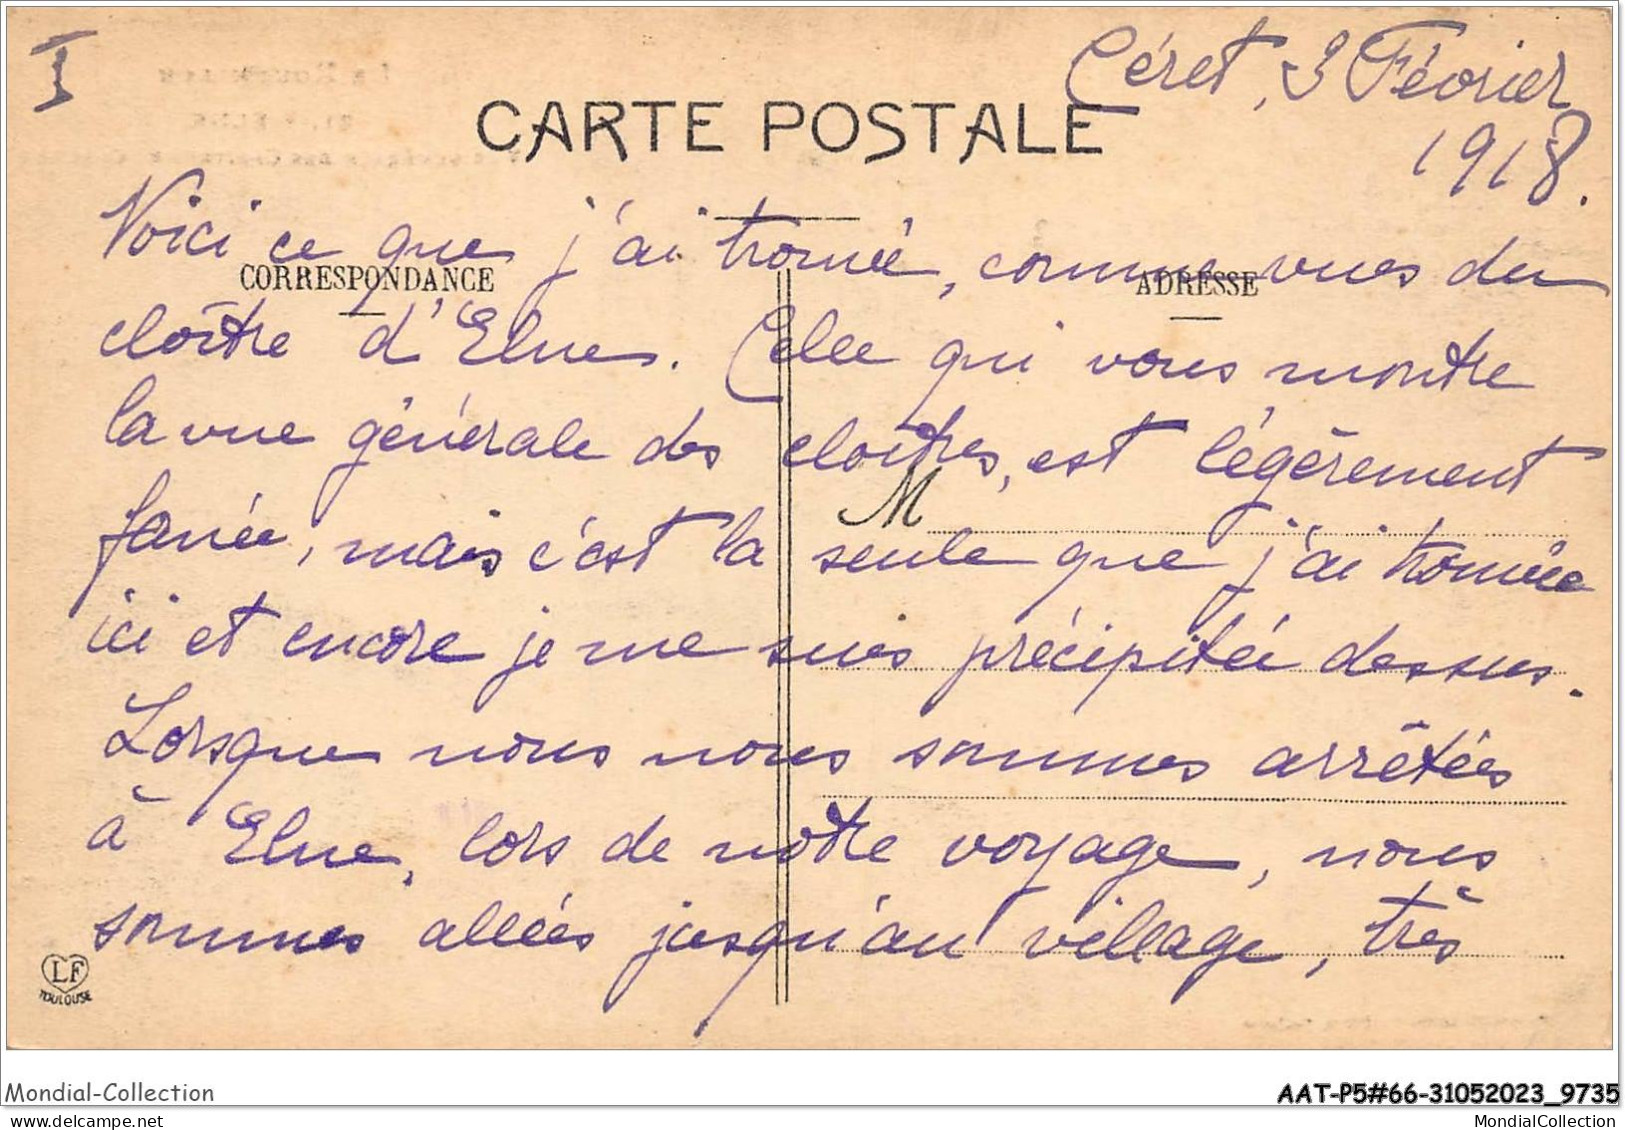 I
Céret, 3 Février
1918.
CARTE POSTALE
Voici ce que j'ai trouvé, comme vues du
CORRESPONDANCE
ADRESSE
cloître d'Elne. Celle qui vous montre
la vue générale des cloîtres, est légèrement
M
fanée, mais c'est la seule que j'ai trouvée
ici et encore je me suis précipitée dessus.
Lorsque nous nous sommes arrêtées
à Elne, lors de notre voyage, nous
sommes allées jusqu'au village, très
LF
TOULOUSE
Mondial-Collection
AAT-P5#66-31052023_9735
MondialCollection
MondialCollection